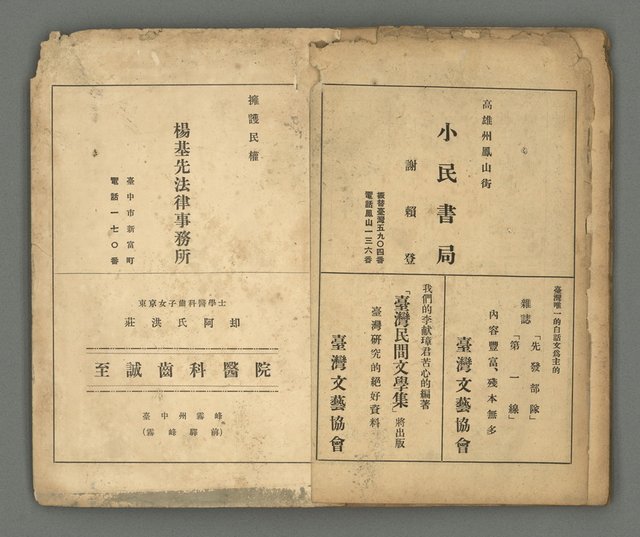 高雄州鳳山街
小民書局
謝賴登
振替臺灣五九〇四番
電話鳳山一三六番
臺灣唯一的白話文爲主的
雜誌
「先發部隊」
「第一線」
內容豐富、殘本無多
臺灣文藝協會
我們的李献璋君苦心的編著
「臺灣民間文學集」將出版
臺灣研究的絕好資料
臺灣文藝協會
擁護民權
楊基先法律事務所
臺中市新富町
電話一七〇番
東京女子齒科醫學士
莊洪氏阿却
至誠齒科醫院
臺中州霧峰
(霧峰驛前)